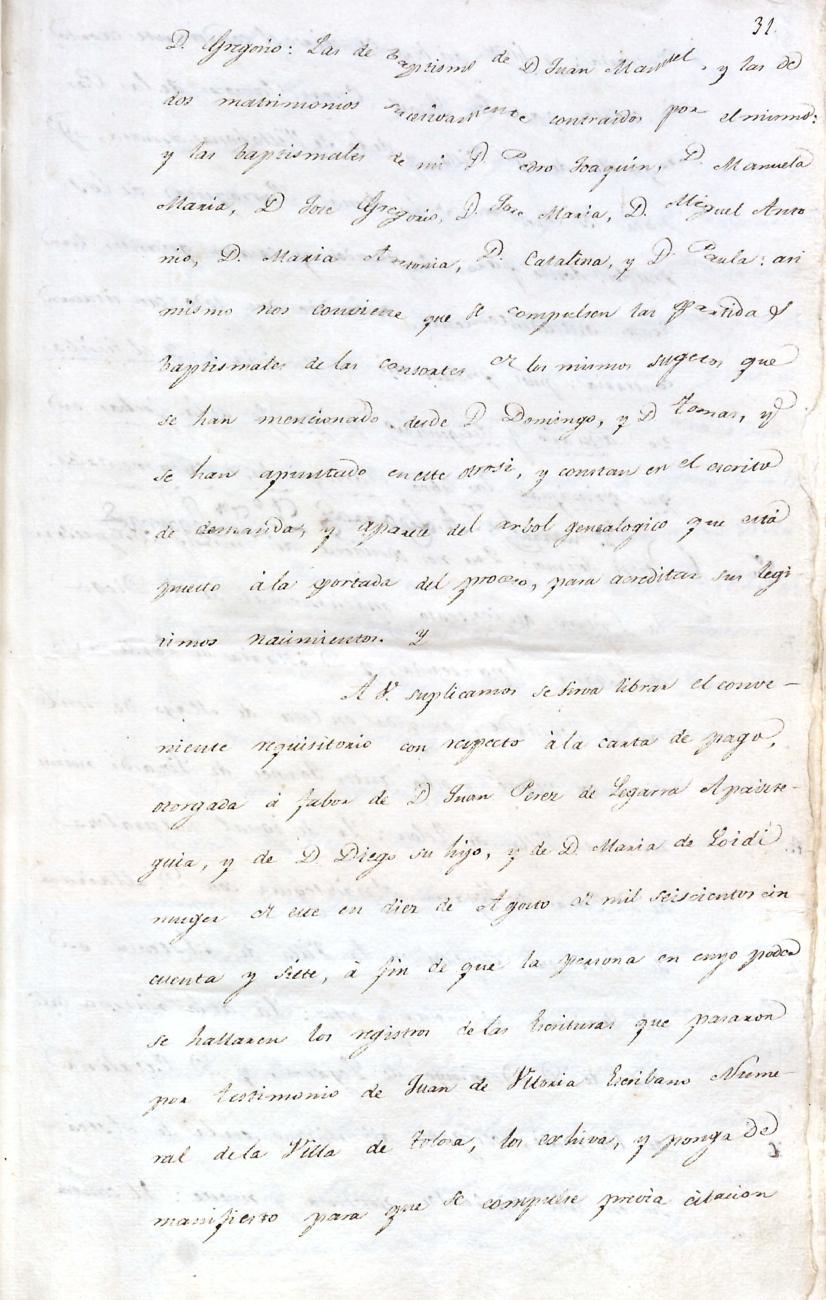 31.
D. Gregorio: Las de Baptismo de D. Juan Manuel, y las de
dos matrimonios sucesivamente contraidos por el mismo:
y las baptismales de mi D. Pedro Joaquin, D. Manuela
Maria, D. Jose Gregorio, D. Jose Maria, D. Miguel Anto-
nio, D. Maria Antonia, D. Catalina, y D. Paula: asi
mismo nos conviene que se compulsen las partidas
baptismales de las consortes de los mismos sugetos que
se han mencionado desde D. Domingo, y D. Tomas, y
se han apuntado en este otrosi, y constan en el escrito
de demanda, y aparece del arbol genealogico que está
puesto à la portada del proceso, para acreditar sus legi-
timos nacimientos. Y
A V. suplicamos se sirva librar el conve-
niente requisitorio con respecto à la carta de pago,
otorgada à fabor de D. Juan Perez de Legarra Apaizte-
guia, y de D. Diego su hijo, y de D. Maria de Loidi
muger de este en diez de Agosto de mil seiscientos cin
cuenta y siete, à fin de que la persona en cuyo poder
se hallaren los registros de las Escrituras que pasaron
por testimonio de Juan de Vitoria Escribano Nume-
ral de la Villa de Tolosa, los exhiva, y ponga de
manifiesto para que se compulse previa citacion